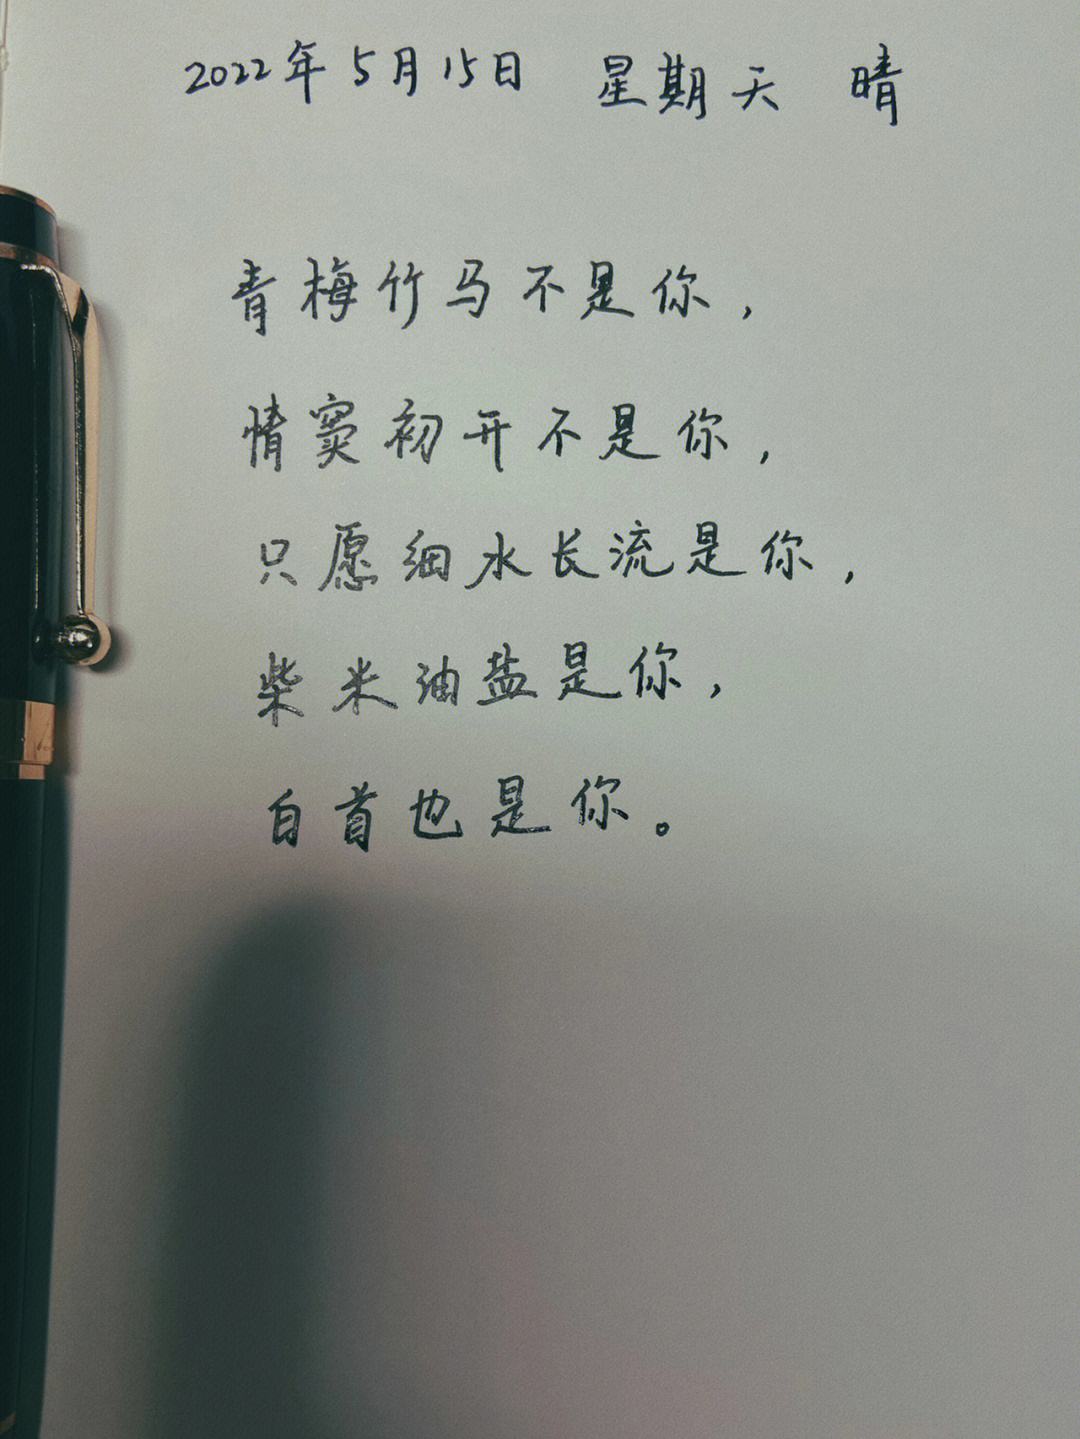 2022年5月15日 星期天 晴
青梅竹马不是你，
情窦初开不是你，
只愿细水长流是你，
柴米油盐是你，
白首也是你。